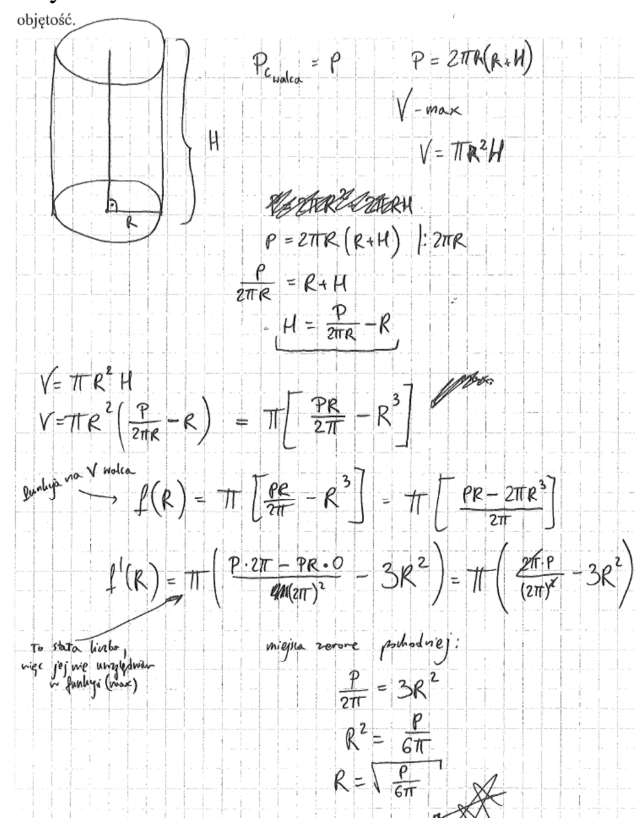 objętość.
P_c walca = P    P = 2πR(R+H)
V - max
V = πR²H
H
R
P = 2πR (R+H)  |: 2πR
P/(2πR) = R+H
H = P/(2πR) - R
V = πR² H
V = πR² (P/(2πR) - R) = π[PR/(2π) - R³]
funkcja na V walca
f(R) = π[PR/(2π) - R³] = π[(PR - 2πR³)/(2π)]
f'(R) = π((P·2π - PR·0)/(2π)² - 3R²) = π((2π·P)/(2π)² - 3R²)
To stała liczba,
więc jej nie uwzględniam
w funkcji (max)
miejsca zerowe pochodnej:
P/(2π) = 3R²
R² = P/(6π)
R = √(P/(6π))